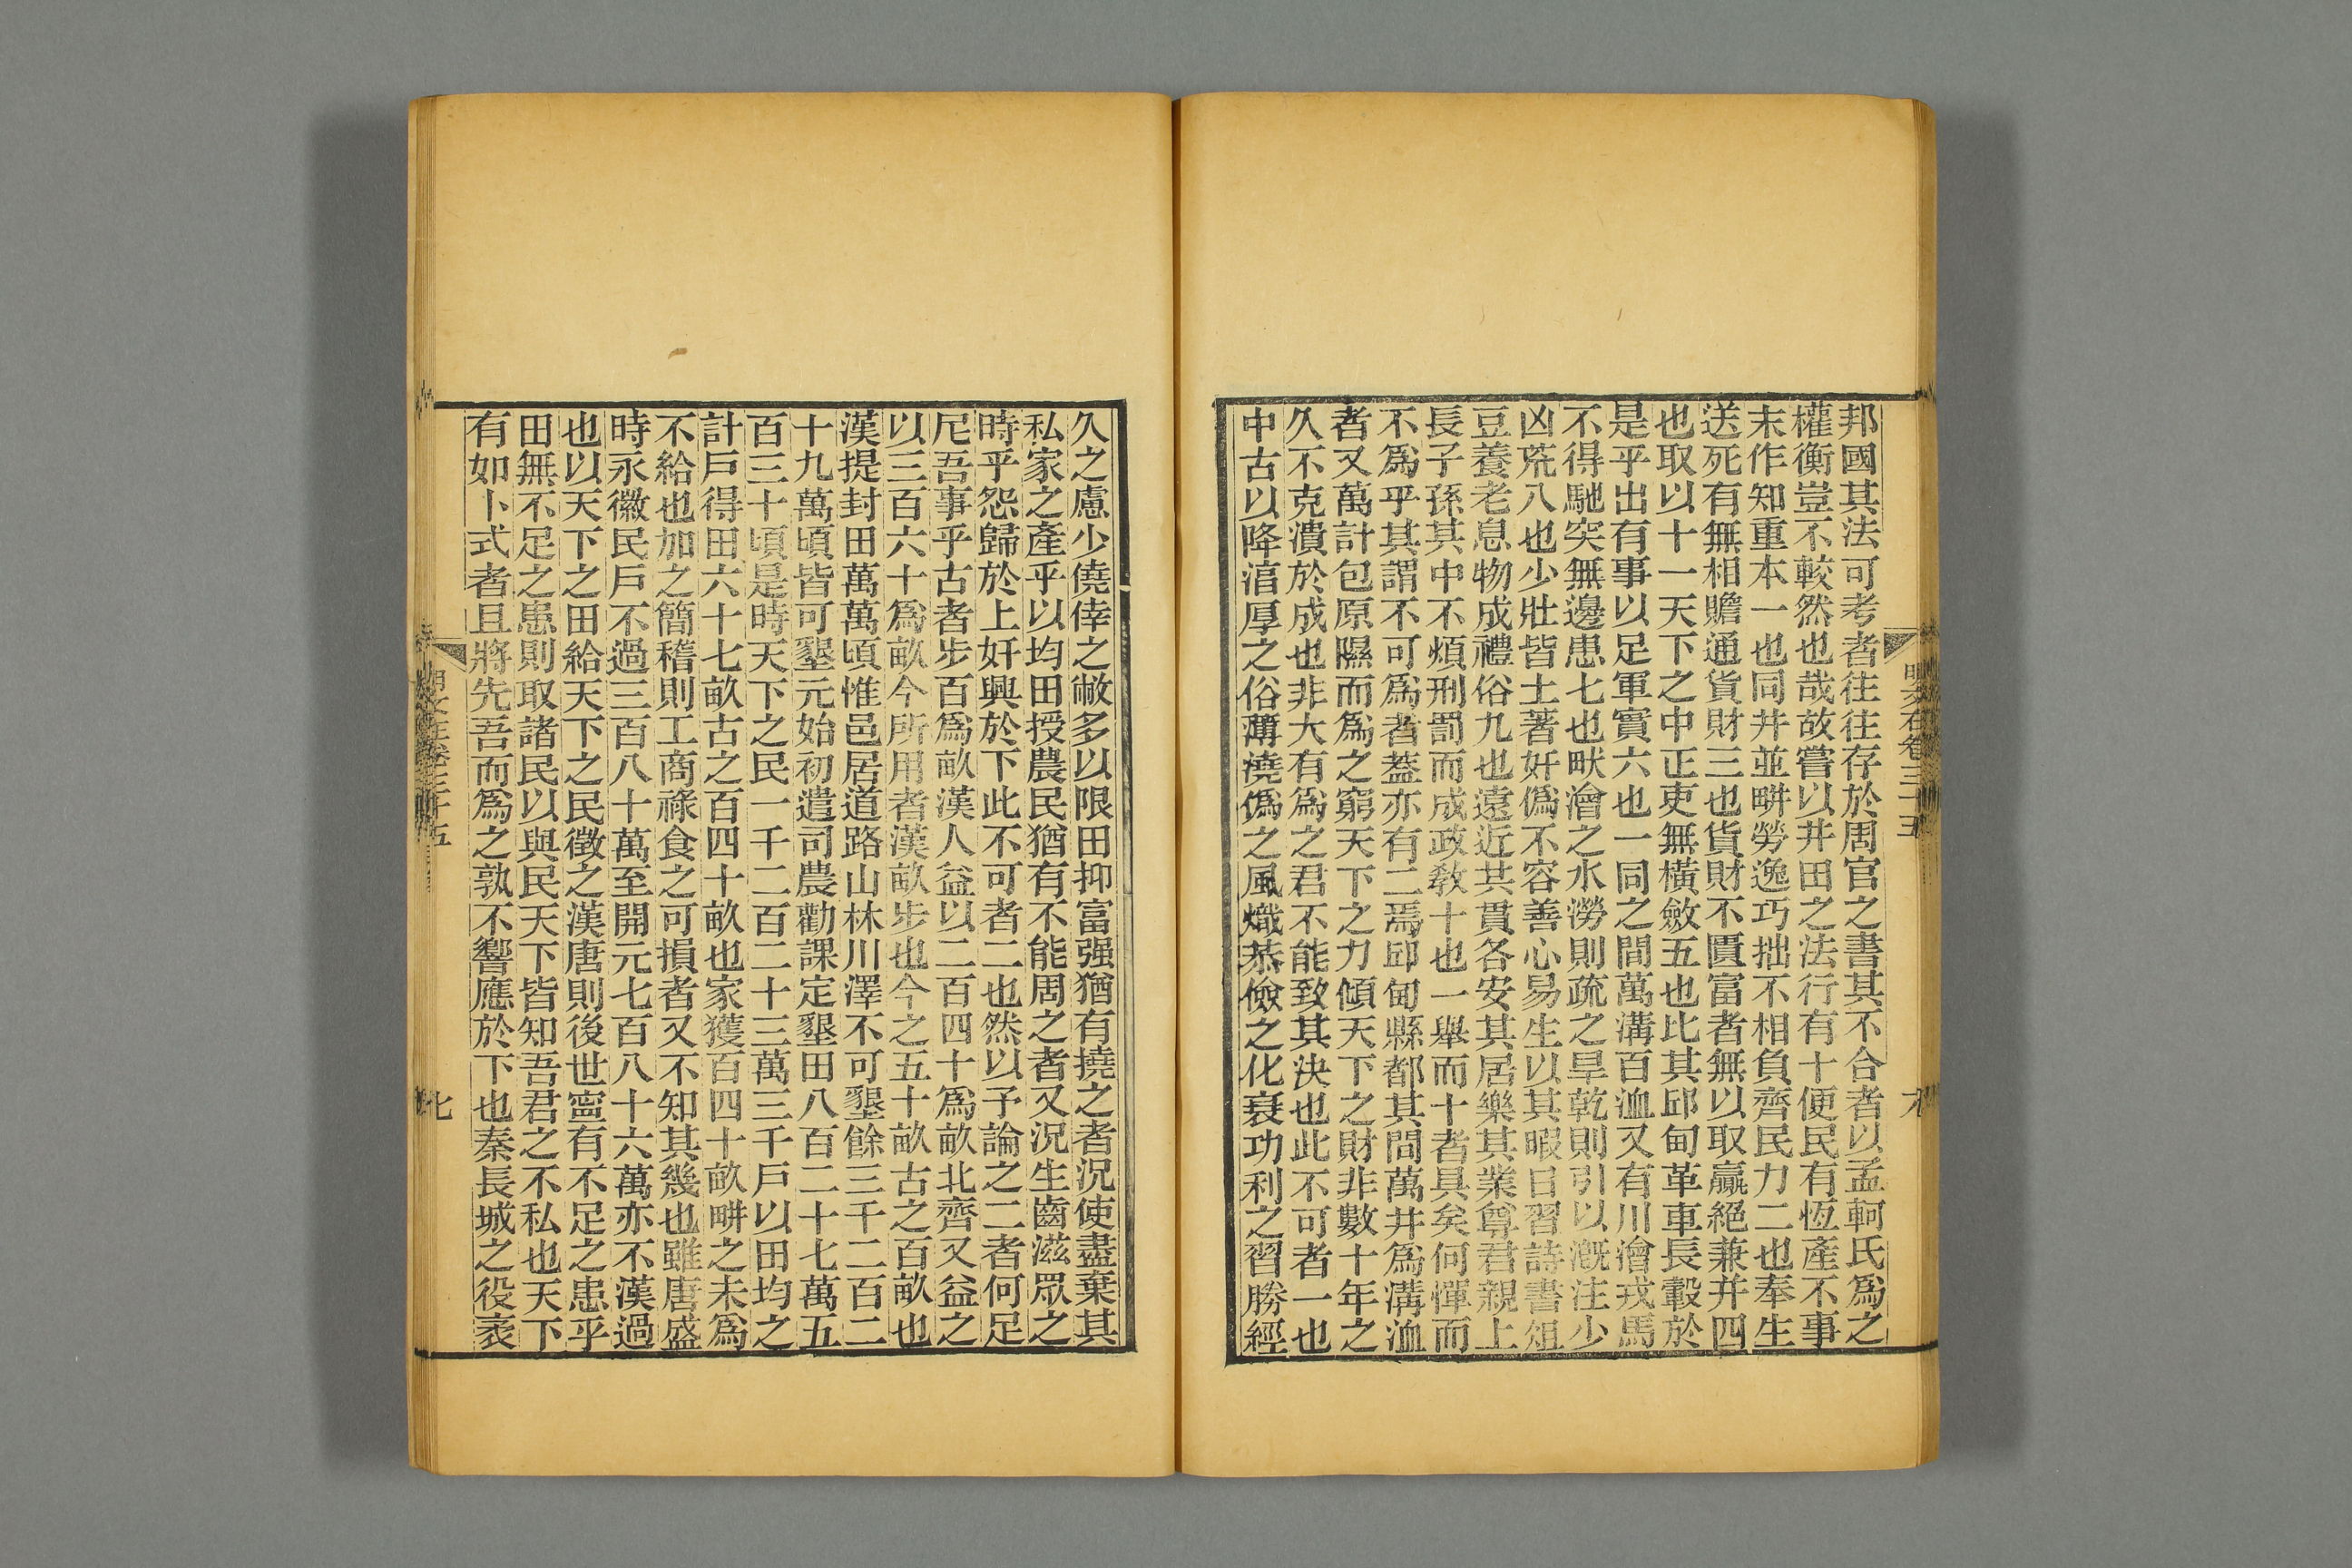 邦國其法可考者往往存於周官之書其不合者以孟軻氏爲之
權衡豈不較然也哉故嘗以井田之法行有十便民有恆產不事
末作知重本一也同井並畊勞逸巧拙不相負齊民力二也奉生
送死有無相贍通貨財三也貨財不匱富者無以取贏絕兼并四
也取以十一天下之中正吏無橫斂五也比其邱甸革車長轂於
是乎出有事以足軍實六也一同之間萬溝百洫又有川澮戎馬
不得馳突無邊患七也畎澮之水澇則疏之旱乾則引以漑注少
凶荒八也少壯皆土著奸僞不容善心易生以其暇日習詩書俎
豆養老息物成禮俗九也遠近共貫各安其居樂其業尊君親上
長子孫其中不煩刑罰而成政敎十也一舉而十者具矣何憚而
不爲乎其謂不可爲者蓋亦有二焉邱甸縣都其間萬井爲溝洫
者又萬計包原隰而爲之窮天下之力傾天下之財非數十年之
久不克潰於成也非大有爲之君不能致其決也此不可者一也
中古以降淯厚之俗薄澆僞之風熾恭儉之化衰功利之習勝經
久之慮少僥倖之敝多以限田抑富强猶有撓之者況使盡棄其
私家之產乎以均田授農民猶有不能周之者又況生齒滋眾之
時乎怨歸於上奸興於下此不可者二也然以予論之二者何足
尼吾事乎古者步百爲畝漢人益以二百四十爲畝北齊又益之
以三百六十爲畝今所用者漢畝步也今之五十畝古之百畝也
漢提封田萬萬頃惟邑居道路山林川澤不可墾餘三千二百二
十九萬頃皆可墾元始初遣司農勸課定墾田八百二十七萬五
百三十頃是時天下之民一千二百二十三萬三千戶以田均之
計戶得田六十七畝古之百四十畝也家獲百四十畝畊之未爲
不給也加之簡稽則工商祿食之可損者又不知其幾也雖唐盛
時永徽民戶不過三百八十萬至開元七百八十六萬亦不漢過
也以天下之田給天下之民徵之漢唐則後世寍有不足之患乎
田無不足之患則取諸民以與民天下皆知吾君之不私也天下
有如卜式者且將先吾而爲之孰不響應於下也秦長城之役袤
七